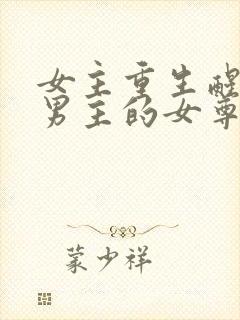 女主重生醒
男主的女尊
蒙少祥